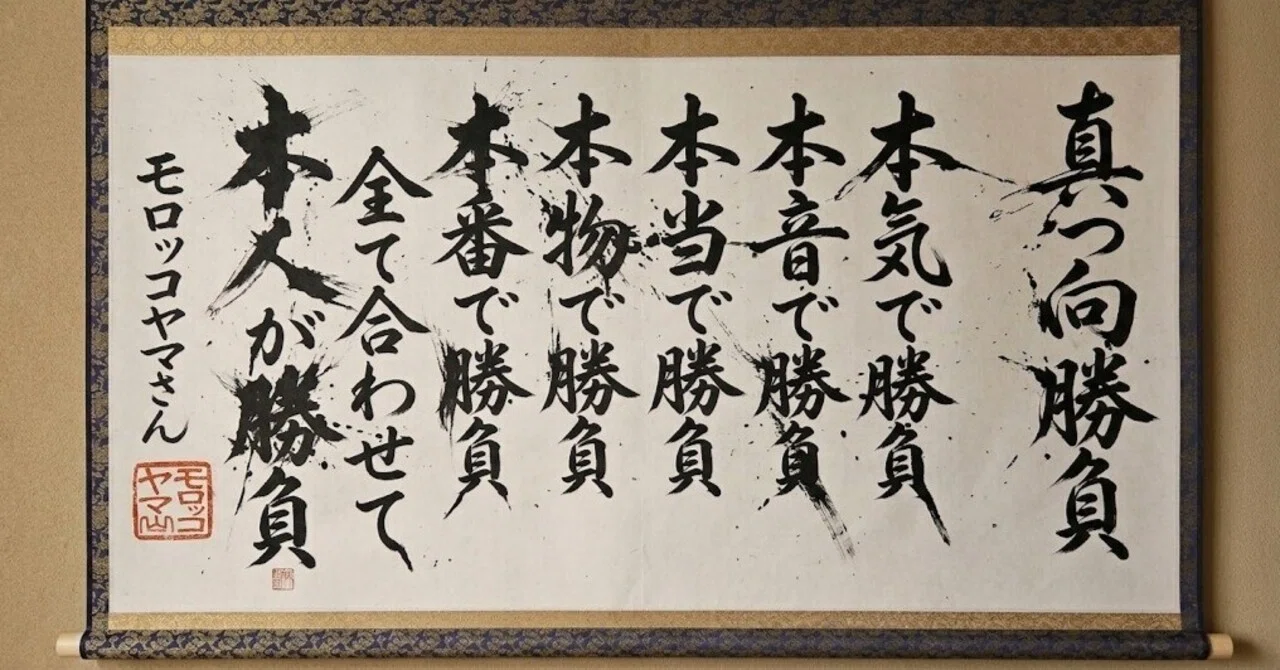 真っ向勝負
本気で勝負
本音で勝負
本当で勝負
本物で勝負
本番で勝負
全て合わせて
本人が勝負
モロッコヤマさん
モロッコ
ヤマ山